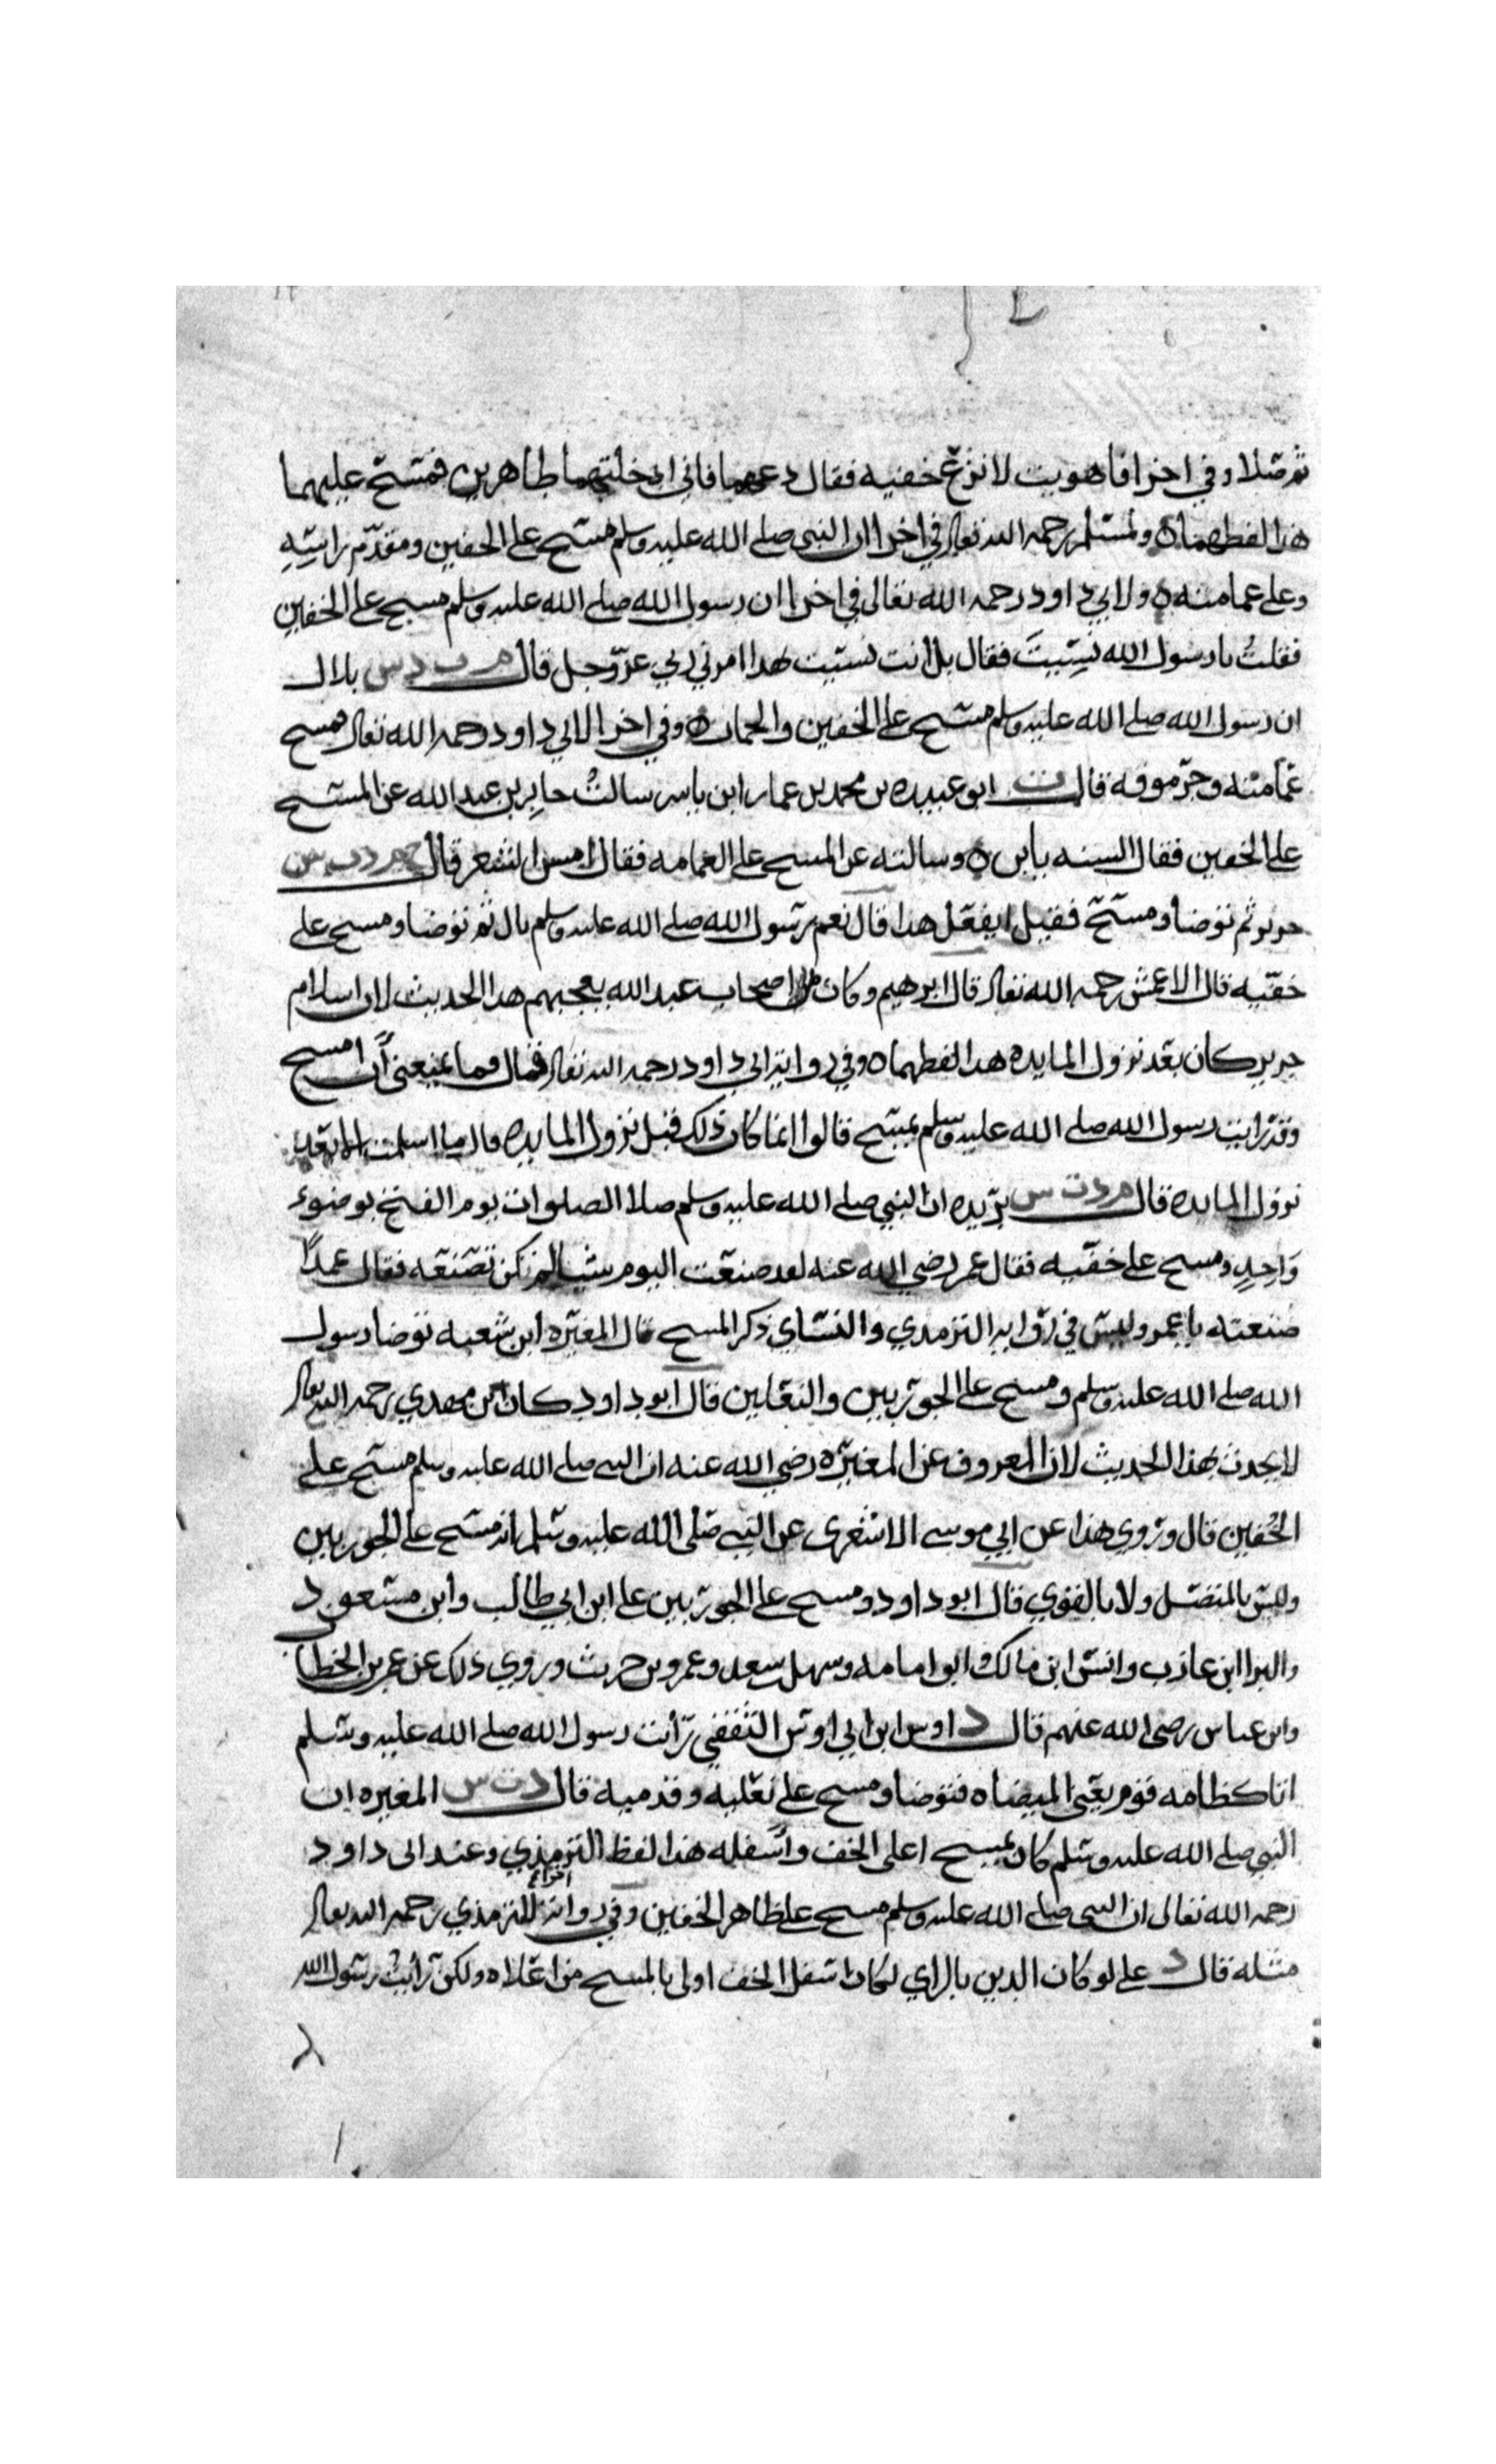 ثم صلا وفي اخرا فاهويت لانزع خفيه فقال دعهما فاني ادخلتهما طاهرين فمسح عليهما
هذا لفظهما ٥ ولمسلم رحمه الله تعالى في اخرا ان النبي صلى الله عليه وسلم مسح على الخفين ومقدم راسه
وعلى عمامته ٥ ولابي داود رحمه الله تعالى في اخرا ان رسول الله صلى الله عليه وسلم مسح على الخفين
فقلت يا رسول الله نسيت فقال بل انت نسيت بهذا امرني ربي عز وجل قال م ت د س بلال
ان رسول الله صلى الله عليه وسلم مسح على الخفين والخمار ٥ وفي اخرا لابي داود رحمه الله تعالى فمسح
عمامته وجرموقه قال ت ابو عبيده بن محمد بن عمار ابن ياسر سالت جابر بن عبد الله عن المسح
على الخفين فقال السنه يا بن ٥ وسالته عن المسح على العمامه فقال امس الشعر قال خ م د ت س
جرير ثم توضا ومسح فقيل ايفعل هذا قال نعم رسول الله صلى الله عليه وسلم بال ثم توضا ومسح على
خفيه قال الاعمش رحمه الله تعالى قال ابرهيم وكان اصحاب عبد الله يعجبهم هذا الحديث لان اسلام
جرير كان بعد نزول المايده هذا لفظهما ٥ وفي رواية ابي داود رحمه الله تعالى فقال فما يمنعني ان امسح
وقد رايت رسول الله صلى الله عليه وسلم يمسح قالوا انما كان ذلك قبل نزول المايده قال ما اسلمت الا بعد
نزول المايده قال م د ت س بريده ان النبي صلى الله عليه وسلم صلا الصلوات يوم الفتح بوضوء
واحد ومسح على خفيه فقال عمر رضي الله عنه لقد صنعت اليوم شيا لم تكن تصنعه فقال عمدا
صنعته يا عمر وليس في رواية الترمدي والنساي ذكر المسح قال المغيره ابن شعبه توضا رسول
الله صلى الله عليه وسلم ومسح على الجوربين والنعلين قال ابو داود كان ابن مهدي رحمه الله تعالى
لا يحدث بهذا الحديث لان المعروف عن المغيره رضي الله عنه ان النبي صلى الله عليه وسلم مسح على
الخفين قال وروي هذا عن ابي موسى الاشعرى عن النبي صلى الله عليه وسلم انه مسح على الجوربين
وليس بالمتصل ولا بالقوي قال ابو داود ومسح على الجوربين على ابن ابي طالب وابن مسعود
والبرا ابن عازب وانس ابن مالك وابو امامه وسهل سعد وعمرو بن حريث وروي ذلك عن عمر بن الخطاب
وابن عباس رضي الله عنهم قال د اوس ابن ابي اوس الثقفي رأيت رسول الله صلى الله عليه وسلم
اتا كظامه قوم يعني الميضاه فتوضا ومسح على نعليه وقدميه قال د ت س المغيره ان
النبي صلى الله عليه وسلم كان يمسح اعلى الخف وأسفله هذا لفظ الترمذي وعند ابي داود
رحمه الله تعالى ان النبي صلى الله عليه وسلم مسح على ظاهر الخفين وفي رواية اخرا للترمذي رحمه الله تعالى
مثله قال د على لو كان الدين بالراي لكان اسفل الخف اولى بالمسح من اعلاه ولكن رأيت رسول الله